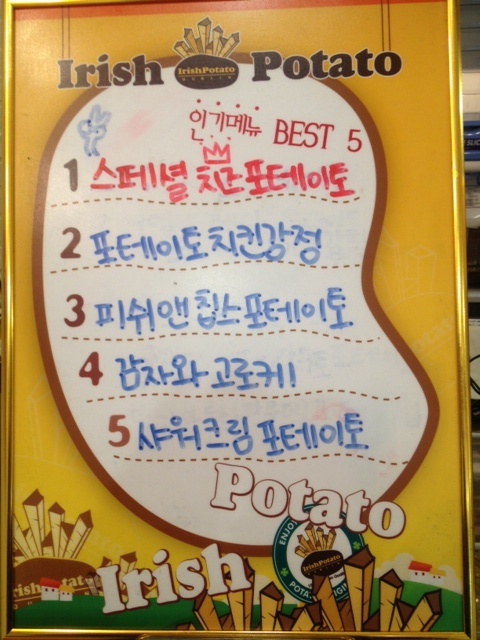 Irish Potato
IrishPotato
DUBLIN
인기메뉴 BEST 5
1 스페셜 치즈 포테이토
2 포테이토치킨강정
3 피쉬앤칩스포테이토
4 감자와 고로케
5 샤워크림포테이토
Potato
Irish
ENJOY
IrishPotato